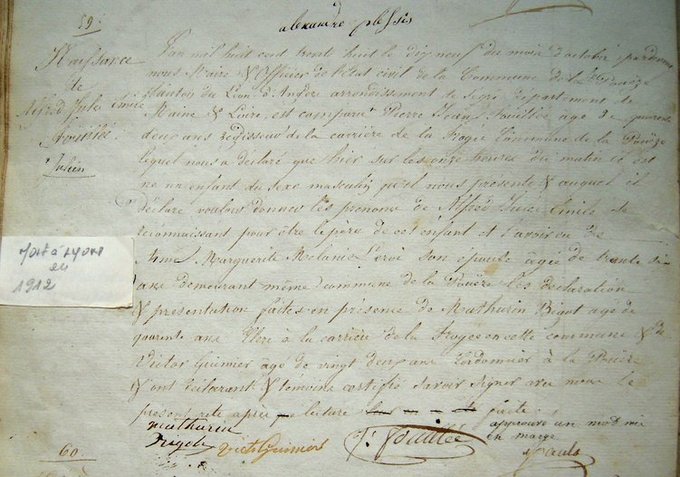 alexandre plessis
59
Naissance
de
Alfred Jules Emile
L'an mil huit cent trente huit le dix neuf du mois d'octobre pardevant
nous Maire & Officier de l'état civil de la Commune de la Pouëze
Canton du Lion d'Angers arrondissement de Segré département de
Maine & Loire, est comparu Pierre Jean âgé de quarante
deux ans régisseur de la carrière de la Commune de la Pouëze
lequel nous a déclaré que hier sur les onze heures du matin il est
né un enfant du sexe masculin qu'il nous présente & auquel il
déclare vouloir donner les prénoms de Alfred Jules Emile se
reconnaissant pour être le père de cet enfant & l'avoir eu de
Anne Marguerite Melanie son épouse agée de trente six
ans demeurant même commune de la Pouëze. Les déclaration
& présentation faites en présence de Mathurin agé de
quarante ans à la carrière de la en cette commune & de
Victor agé de vingt deux ans Cordonnier à la Pouëze
& ont déclarant & témoins savoir signer avec nous le
present acte après lecture faite
approuvé un mot mis
en marge
mathurin
60
Mort à Lyons
en
1912